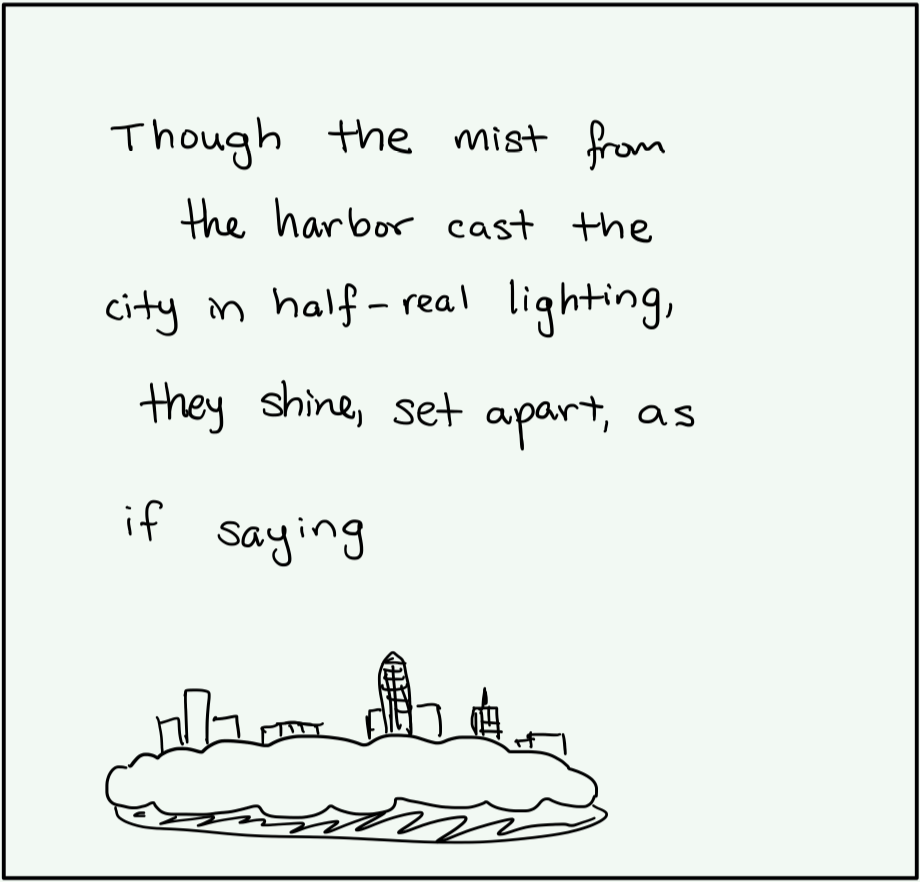 Though the mist from
the harbor cast the
city in half-real lighting,
they shine, set apart, as
if saying